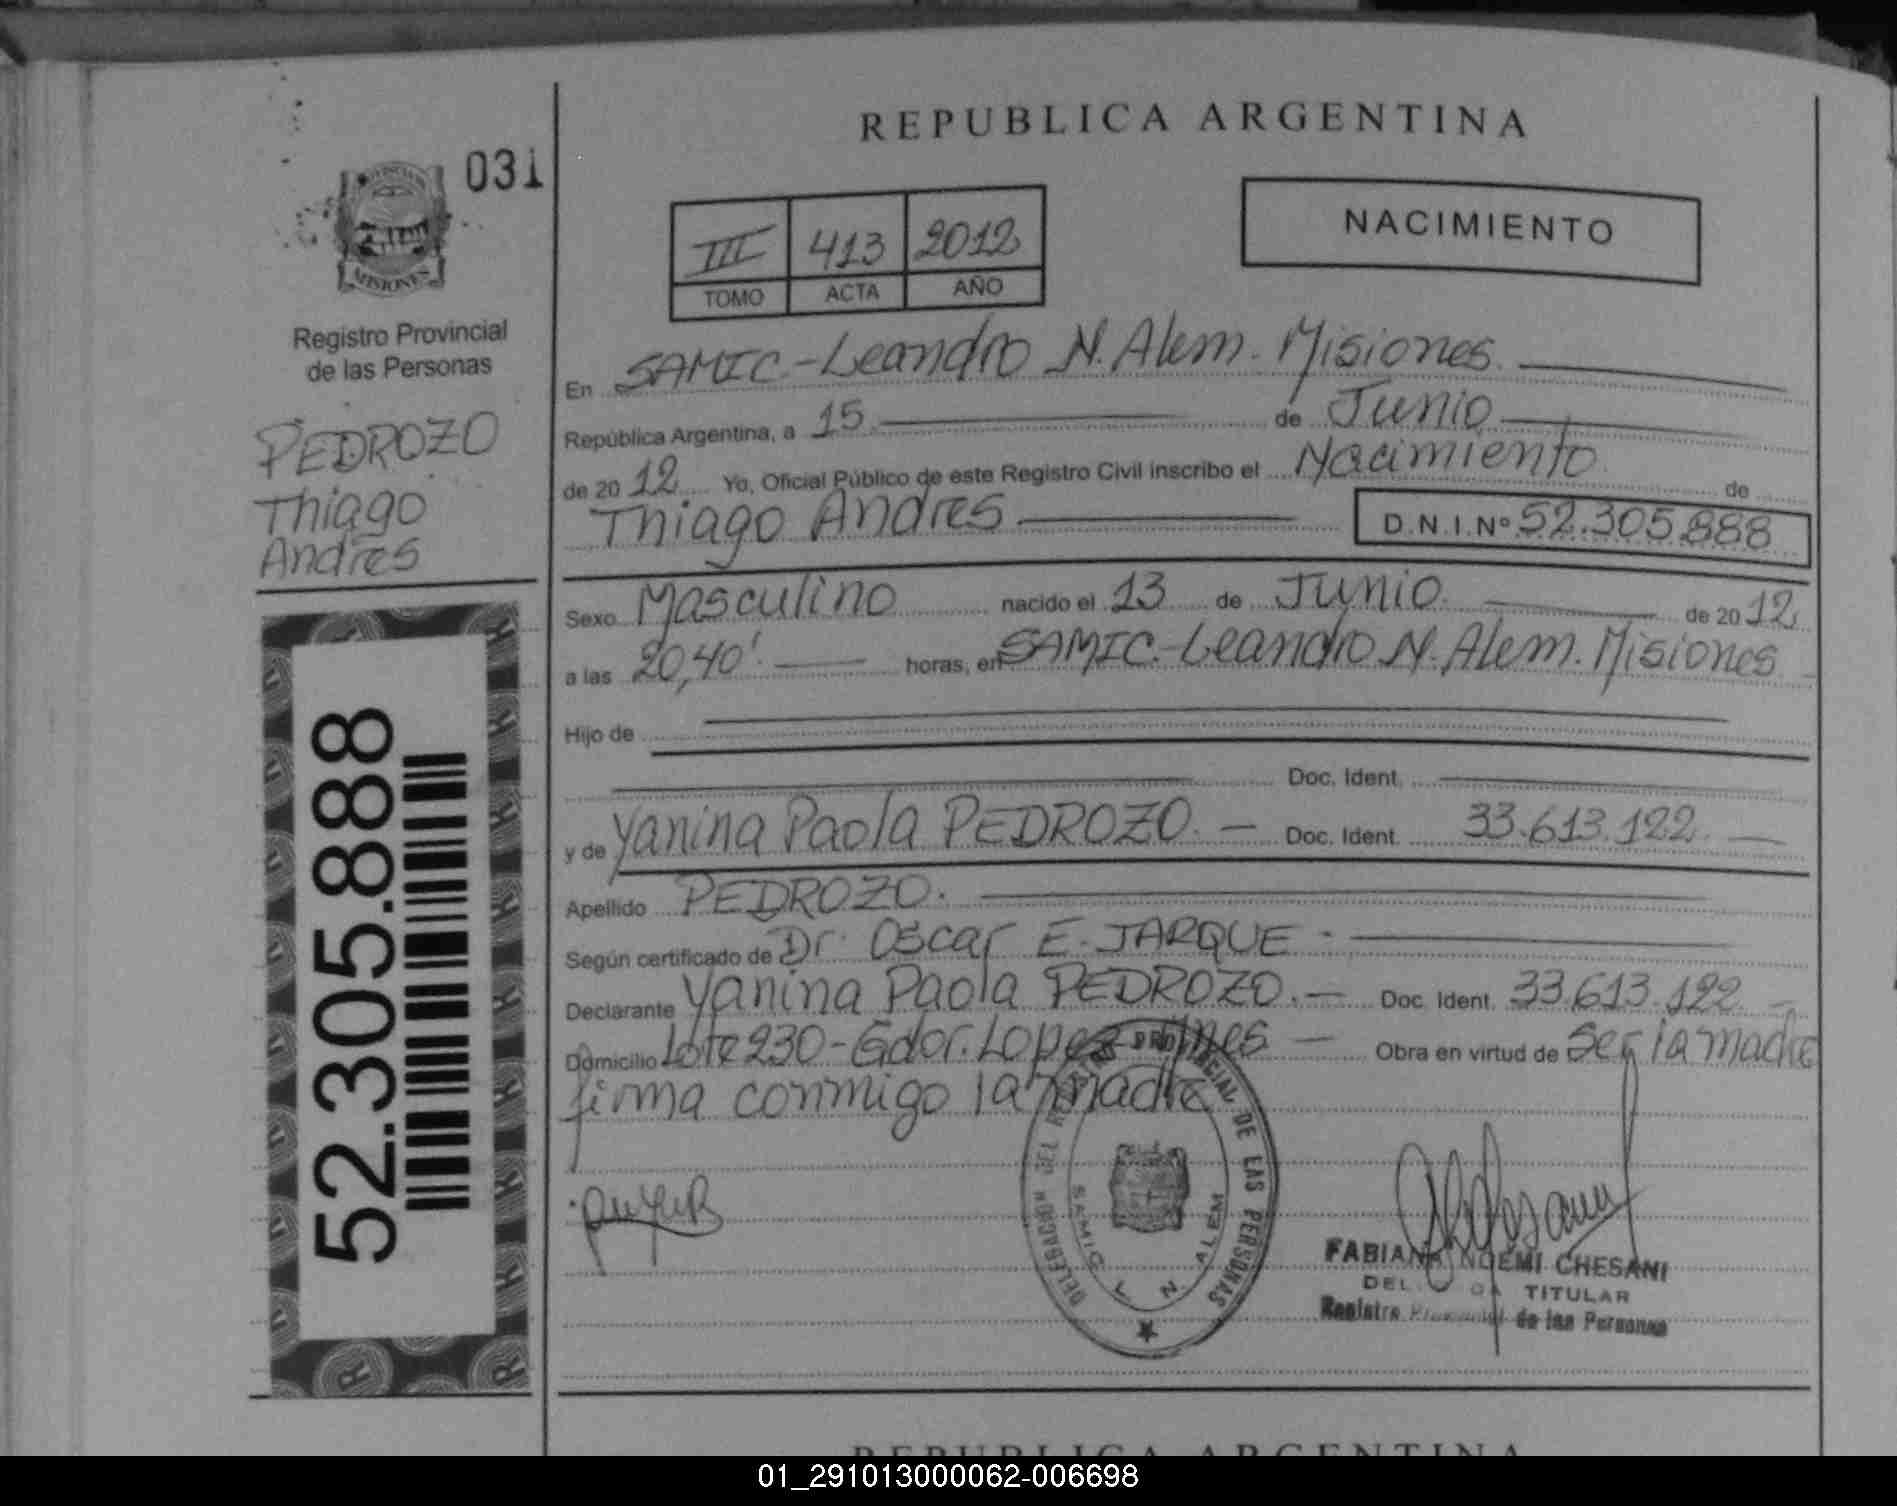 REPUBLICA ARGENTINA
031
NACIMIENTO
III 413 2012
TOMO ACTA AÑO
MISIONES
Registro Provincial
de las Personas
PEDROZO
Thiago
Andres
52.305.888
En SAMIC.-Leandro N. Alem. Misiones.
República Argentina, a 15 de Junio
de 2012 Yo, Oficial Público de este Registro Civil inscribo el Nacimiento de
Thiago Andres D.N.I.Nº 52.305.888
Sexo Masculino nacido el 13 de Junio. de 2012
a las 20,40'. horas, en SAMIC.-Leandro N. Alem. Misiones
Hijo de
Doc. Ident.
y de Yanina Paola PEDROZO. Doc. Ident. 33.613.122.
Apellido PEDROZO.
Según certificado de Dr. Oscar E. JARQUE.
Declarante Yanina Paola PEDROZO. Doc. Ident. 33.613.122
Domicilio Lote 230-Gdor. Lopez Obra en virtud de Ser la madre
firma conmigo la madre
DELEGACION DEL REGISTRO PROVINCIAL DE LAS PERSONAS
SAMIC L. N. ALEM
FABIANA NOEMI CHESANI
TITULAR
Registro Provincial de las Personas
REPUBLICA ARGENTINA
01_291013000062-006698